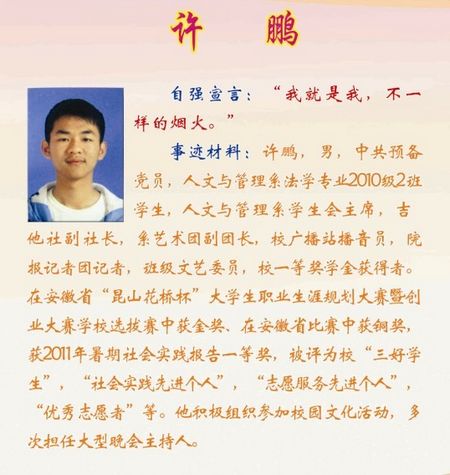 许 鹏
自强宣言：“我就是我，不一
样的烟火。”
事迹材料：许鹏，男，中共预备
党员，人文与管理系法学专业2010级2班
学生，人文与管理系学生会主席，吉
他社副社长，系艺术团副团长，校广播站播音员，院
报记者团记者，班级文艺委员，校一等奖学金获得者。
在安徽省“昆山花桥杯”大学生职业生涯规划大赛暨创
业大赛学校选拔赛中获金奖、在安徽省比赛中获铜奖，
获2011年暑期社会实践报告一等奖，被评为校“三好学
生”，“社会实践先进个人”，“志愿服务先进个人”，
“优秀志愿者”等。他积极组织参加校园文化活动，多
次担任大型晚会主持人。